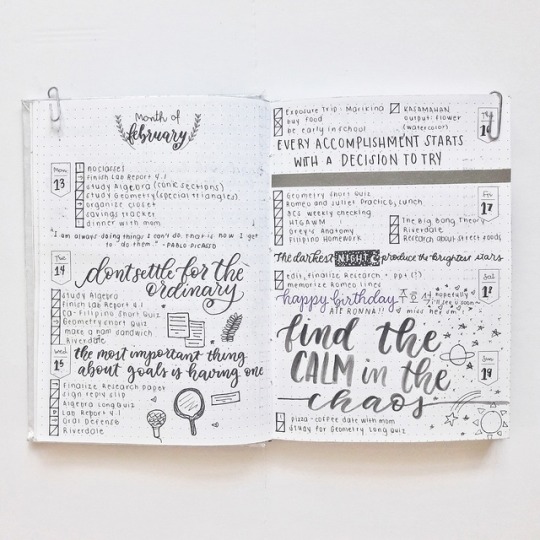 Month of
february
Mon
13
no classes
finish Lab Report 4.1
study Algebra (conic sections)
study Geometry (special triangles)
organize closet
savings tracker
dinner with mom
"I am always doing things I can't do, that is how I get
to do them" - PABLO PICASSO
Tue
14
don't settle for the
ordinary
study Algebra
finish Lab Report 4.1
Ca-Filipino short quiz
Geometry short quiz
make a ham sandwich
Riverdale
Wed
15
the most important thing
about goals is having one
Finalize Research paper
sign reply slip
Algebra Long Quiz
Lab Report 4.1
Oral Defense
Riverdale
Exposure Trip: Marikina
buy food
be early in school
KASAMAHAN
output: flower
(watercolor)
16
EVERY ACCOMPLISHMENT STARTS
WITH A DECISION TO TRY
Fri
17
Geometry Short Quiz
Romeo and Juliet Practice, Lunch
BCS weekly checking
HTGAWM
Grey's Anatomy
Filipino Homework
The Big Bang Theory
Riverdale
Research about street foods
The darkest NIGHTS produce the brightest stars
Sat
18
edit, finalize Research + ppt (!)
memorize Romeo lines
happy birthday
ATE RONNA!!
miss her sm
hopefully
find the
CALM in the
chaos
Sun
19
pizza - coffee date with mom
study for Geometry Long Quiz